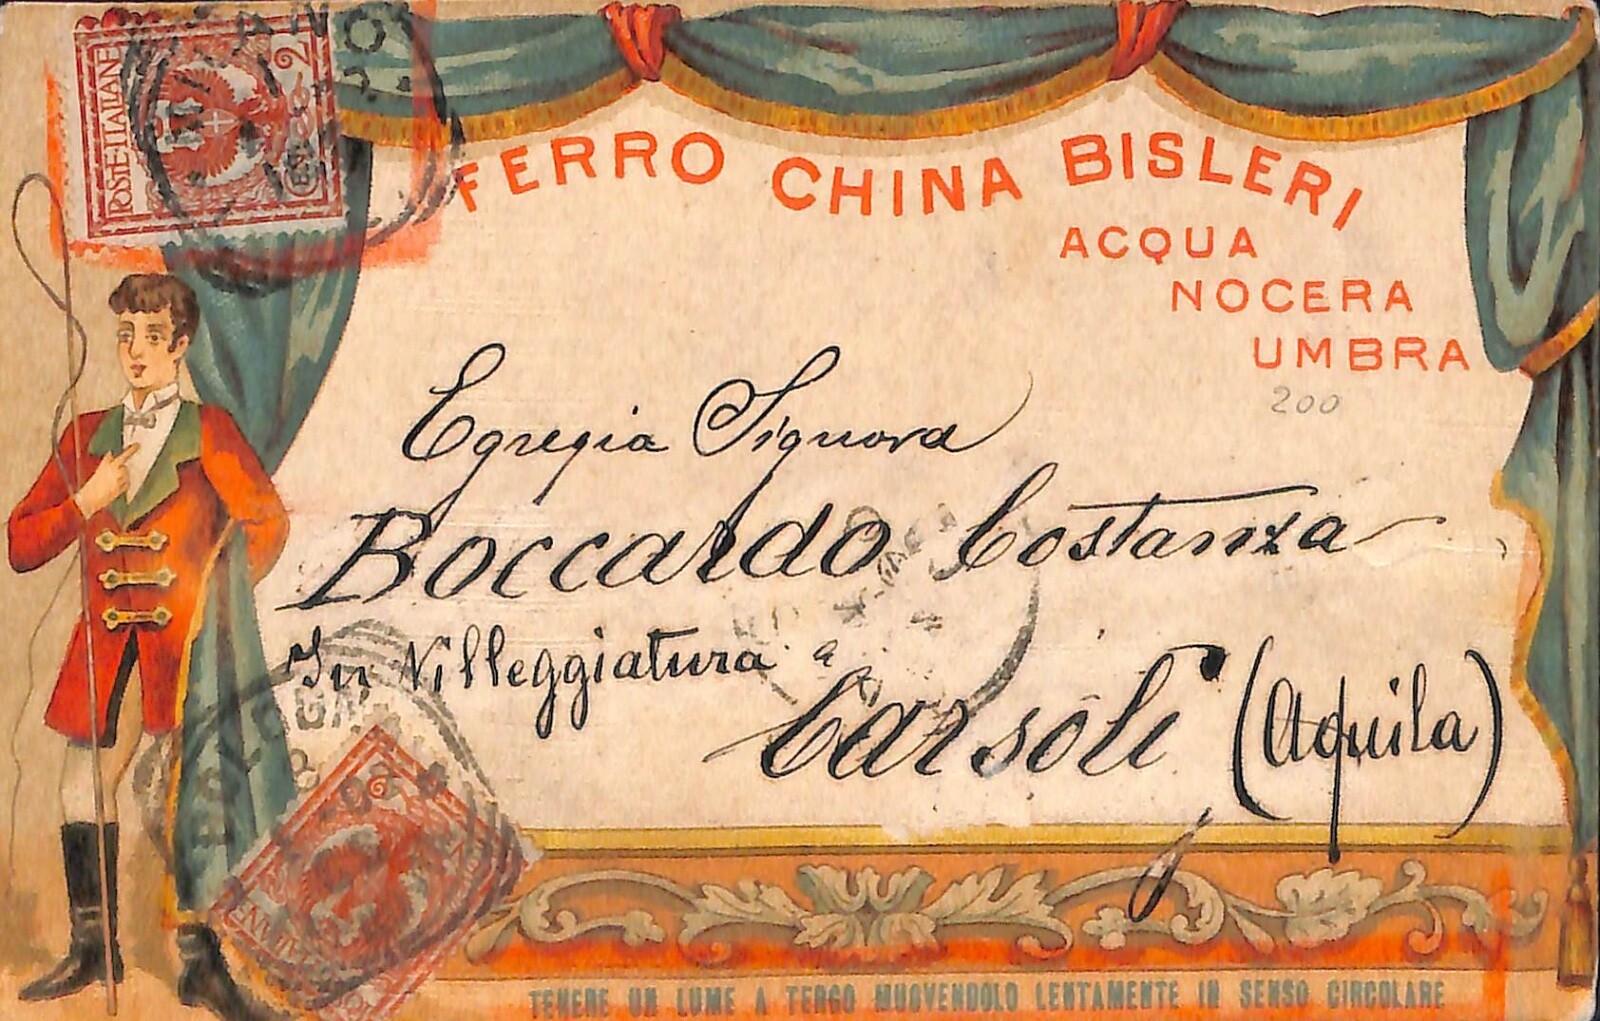 POSTE ITALIANE
2
MILANO
FERRO CHINA BISLERI
ACQUA
NOCERA
UMBRA
200
Egregia Signora
Boccardo Costanza
In Villeggiatura a
Carsoli (Aquila)
BOLOGNA
TENERE UN LUME A TERGO MUOVENDOLO LENTAMENTE IN SENSO CIRCOLARE